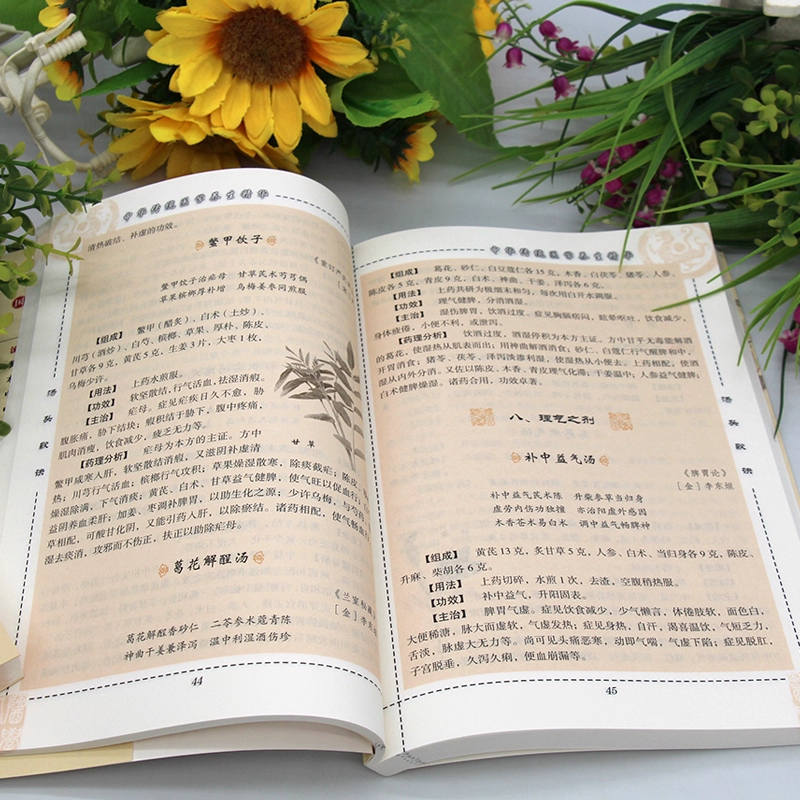 中华传统医学养生精华
清热破结、补虚的功效。
鳖甲饮子
《重订严氏
鳖甲饮子治疟母 甘草芪术芎芍偶
草果槟榔厚朴增 乌梅姜枣同煎服
【组成】 鳖甲（醋炙）、白术（土炒）、
川芎（酒炒）、白芍、槟榔、草果、厚朴、陈皮、
甘草各9克，黄芪5克，生姜3片，大枣1枚，
乌梅少许。
【用法】 上药水煎服。
【功效】 软坚散结，行气活血，祛湿消瘕。
【主治】 疟母。症见疟疾日久不愈，胁
腹胀痛，胁下结块；瘕积结于胁下，腹中疼痛，
肌肉消瘦，饮食减少，疲乏无力等。
【药理分析】 疟母为本方的主证。方中
鳖甲咸寒人肝，软坚散结消瘕，又滋阴补虚清
热；川芎行气活血；槟榔行气攻积；草果燥湿散寒，除痰截疟；陈皮、
燥湿除满，下气消痰；黄芪、白术、甘草益气健脾，使气旺以促血行；白
益阴养血柔肝；加姜、枣调补脾胃，以助生化之源；少许乌梅，与芍药、
草相配，可酸甘化阴，又能引药人肝，以除瘀结。诸药相配，使气畅血
湿去痰消，攻邪而不伤正，扶正以助除疟母。
甘草
葛花解酲汤
《兰室秘藏
［金］李东垣
葛花解酲香砂仁 二苓参术蔻青陈
神曲干姜兼泽泻 温中利湿酒伤珍
44
汤头歌诀
中华传统医学养生精华
【组成】 葛花、砂仁、白豆蔻仁各15克，木香、白茯苓、猪苓、人参、
陈皮各5克，青皮9克，白术、神曲、干姜、泽泻各6克。
【用法】 上药共研为极细末和匀，每次用白开水调服。
【功效】 理气健脾，分消酒湿。
【主治】 湿伤脾胃，饮酒过度，症见胸膈痞闷，眩晕呕吐，饮食减少，
身体疲倦，小便不利，或泄泻。
【药理分析】 饮酒过度，酒湿停积为本方主证。方中甘平无毒能解酒
的葛花，使湿热从肌表而出；用神曲解酒消食；砂仁、白蔻仁行气醒脾和中，
开胃消食；猪苓、茯苓、泽泻淡渗利湿，使湿热从小便去。上药相配，使酒
湿从内外分消。又佐以陈皮、木香、青皮理气化滞；干姜温中；人参益气健脾；
白术健脾燥湿。诸药合用，功效卓著。
八、理气之剂
补中益气汤
《脾胃论》
［金］李东垣
补中益气芪术陈 升柴参草当归身
虚劳内伤功独擅 亦治阳虚外感因
木香苍术易白术 调中益气畅脾神
【组成】 黄芪13克，炙甘草5克，人参、白术、当归身各9克，陈皮、
升麻、柴胡各6克。
【用法】 上药切碎，水煎1次，去渣，空腹稍热服。
【功效】 补中益气，升阳固表。
【主治】 脾胃气虚。症见饮食减少，少气懒言，体倦肢软，面色白，
大便稀溏，脉大而虚软，气虚发热；症见身热，自汗，渴喜温饮，气短乏力，
舌淡，脉虚大无力等。尚可见头痛恶寒，动即气喘，气虚下陷；症见脱肛，
子宫脱垂，久泻久痢，便血崩漏等。
45
汤头歌诀